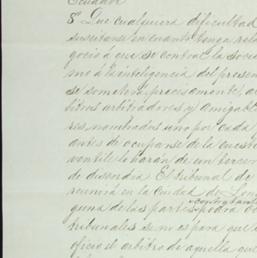 Ecuador
5º Que cualquiera dificultad
suscitarse en cuanto tenga rela
gocio á que se contrae la socie
mo á la inteligencia del presen
se someterá precisamente, a
bitros arbitradores, y amigabl
res nombrados uno por cada
antes de ocuparse de la cuest
ventilo harán de un tercero
de discordia. El tribunal se
reunirá en la Ciudad de Lon
guna de las partes contratant
podrá oc
tribunales si no es para que l
oficio el arbitro de aquella que